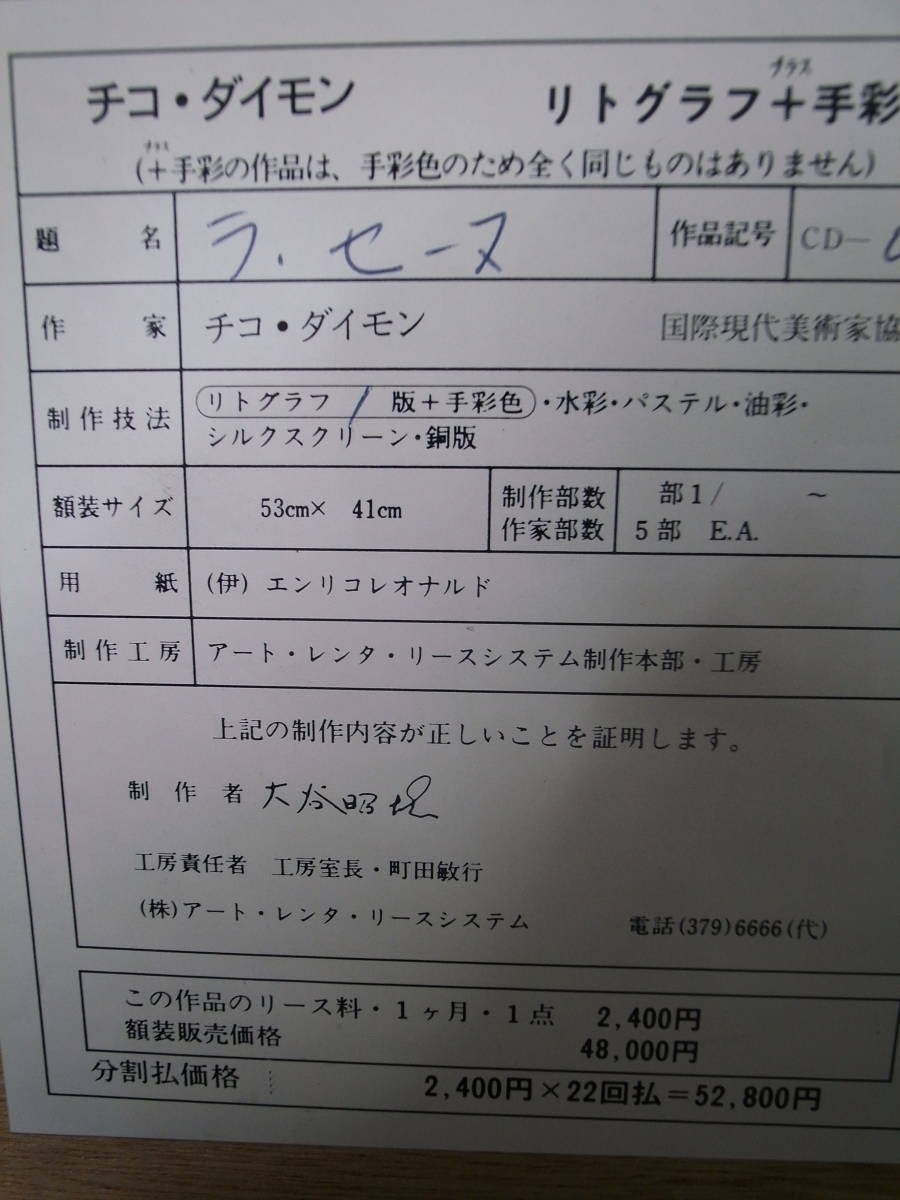 チコ・ダイモン リトグラフ＋手彩
プラス
(＋手彩の作品は、手彩色のため全く同じものはありません)
プラス
題 名 ラ・セーヌ 作品記号 CD—
作 家 チコ・ダイモン 国際現代美術家協
制作技法 リトグラフ / 版＋手彩色・水彩・パステル・油彩・
シルクスクリーン・銅版
額装サイズ 53cm× 41cm 制作部数 部1/ ～
作家部数 5部 E.A.
用 紙 (伊) エンリコレオナルド
制作工房 アート・レンタ・リースシステム制作本部・工房
上記の制作内容が正しいことを証明します。
制 作 者 大谷昭
工房責任者 工房室長・町田敏行
(株)アート・レンタ・リースシステム 電話(379)6666(代)
この作品のリース料・1ヶ月・1点 2,400円
額装販売価格 48,000円
分割払価格 2,400円×22回払＝52,800円